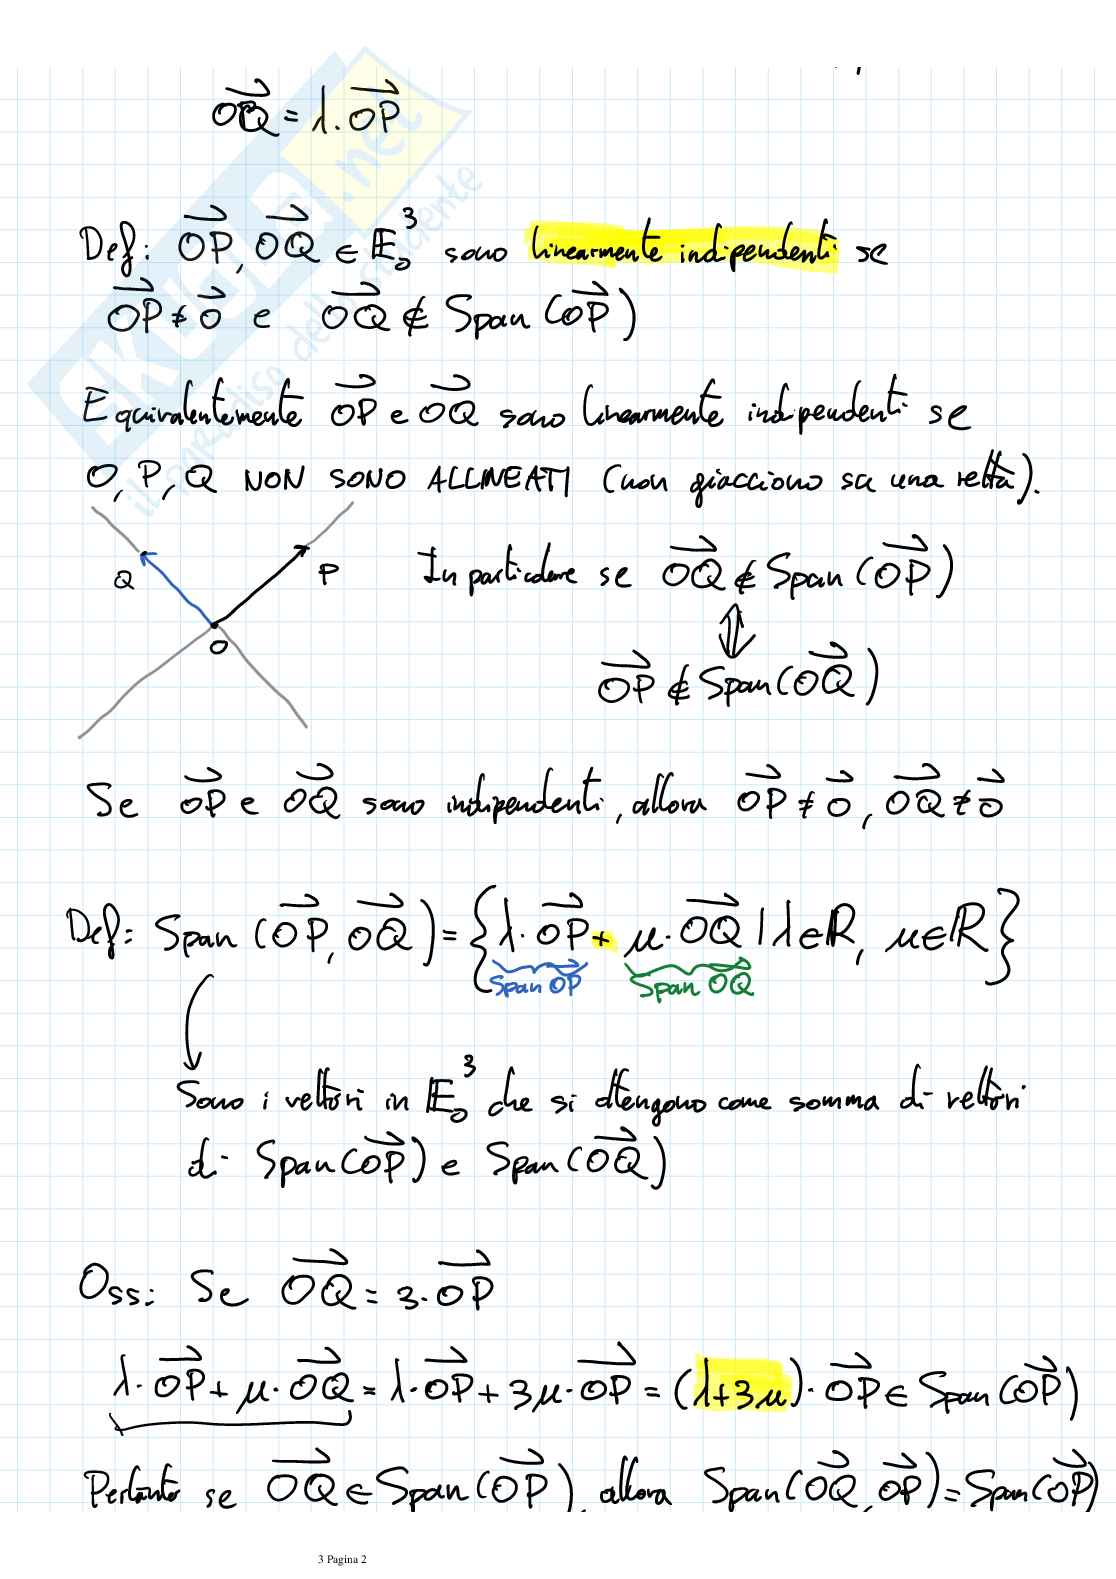 OQ⃗ = λ·OP⃗
Def: OP⃗, OQ⃗ ∈ 𝔼₀³ sono linearmente indipendenti se
OP⃗ ≠ 0⃗ e OQ⃗ ∉ Span (OP⃗)
Equivalentemente OP⃗ e OQ⃗ sono linearmente indipendenti se
O, P, Q NON SONO ALLINEATI (non giacciono su una retta).
Q P O
In particolare se OQ⃗ ∉ Span (OP⃗)
⇕
OP⃗ ∉ Span (OQ⃗)
Se OP⃗ e OQ⃗ sono indipendenti, allora OP⃗ ≠ 0⃗, OQ⃗ ≠ 0⃗
Def: Span (OP⃗, OQ⃗) = {λ·OP⃗ + μ·OQ⃗ | λ∈ℝ, μ∈ℝ}
Span OP⃗ Span OQ⃗
Sono i vettori in 𝔼₀³ che si ottengono come somma di vettori
di Span (OP⃗) e Span (OQ⃗)
Oss: Se OQ⃗ = 3·OP⃗
λ·OP⃗ + μ·OQ⃗ = λ·OP⃗ + 3μ·OP⃗ = (λ+3μ)·OP⃗ ∈ Span (OP⃗)
Pertanto se OQ⃗ ∈ Span (OP⃗), allora Span (OQ⃗, OP⃗) = Span (OP⃗)
3 Pagina 2
SKUOLA.net
il paradiso dello studente